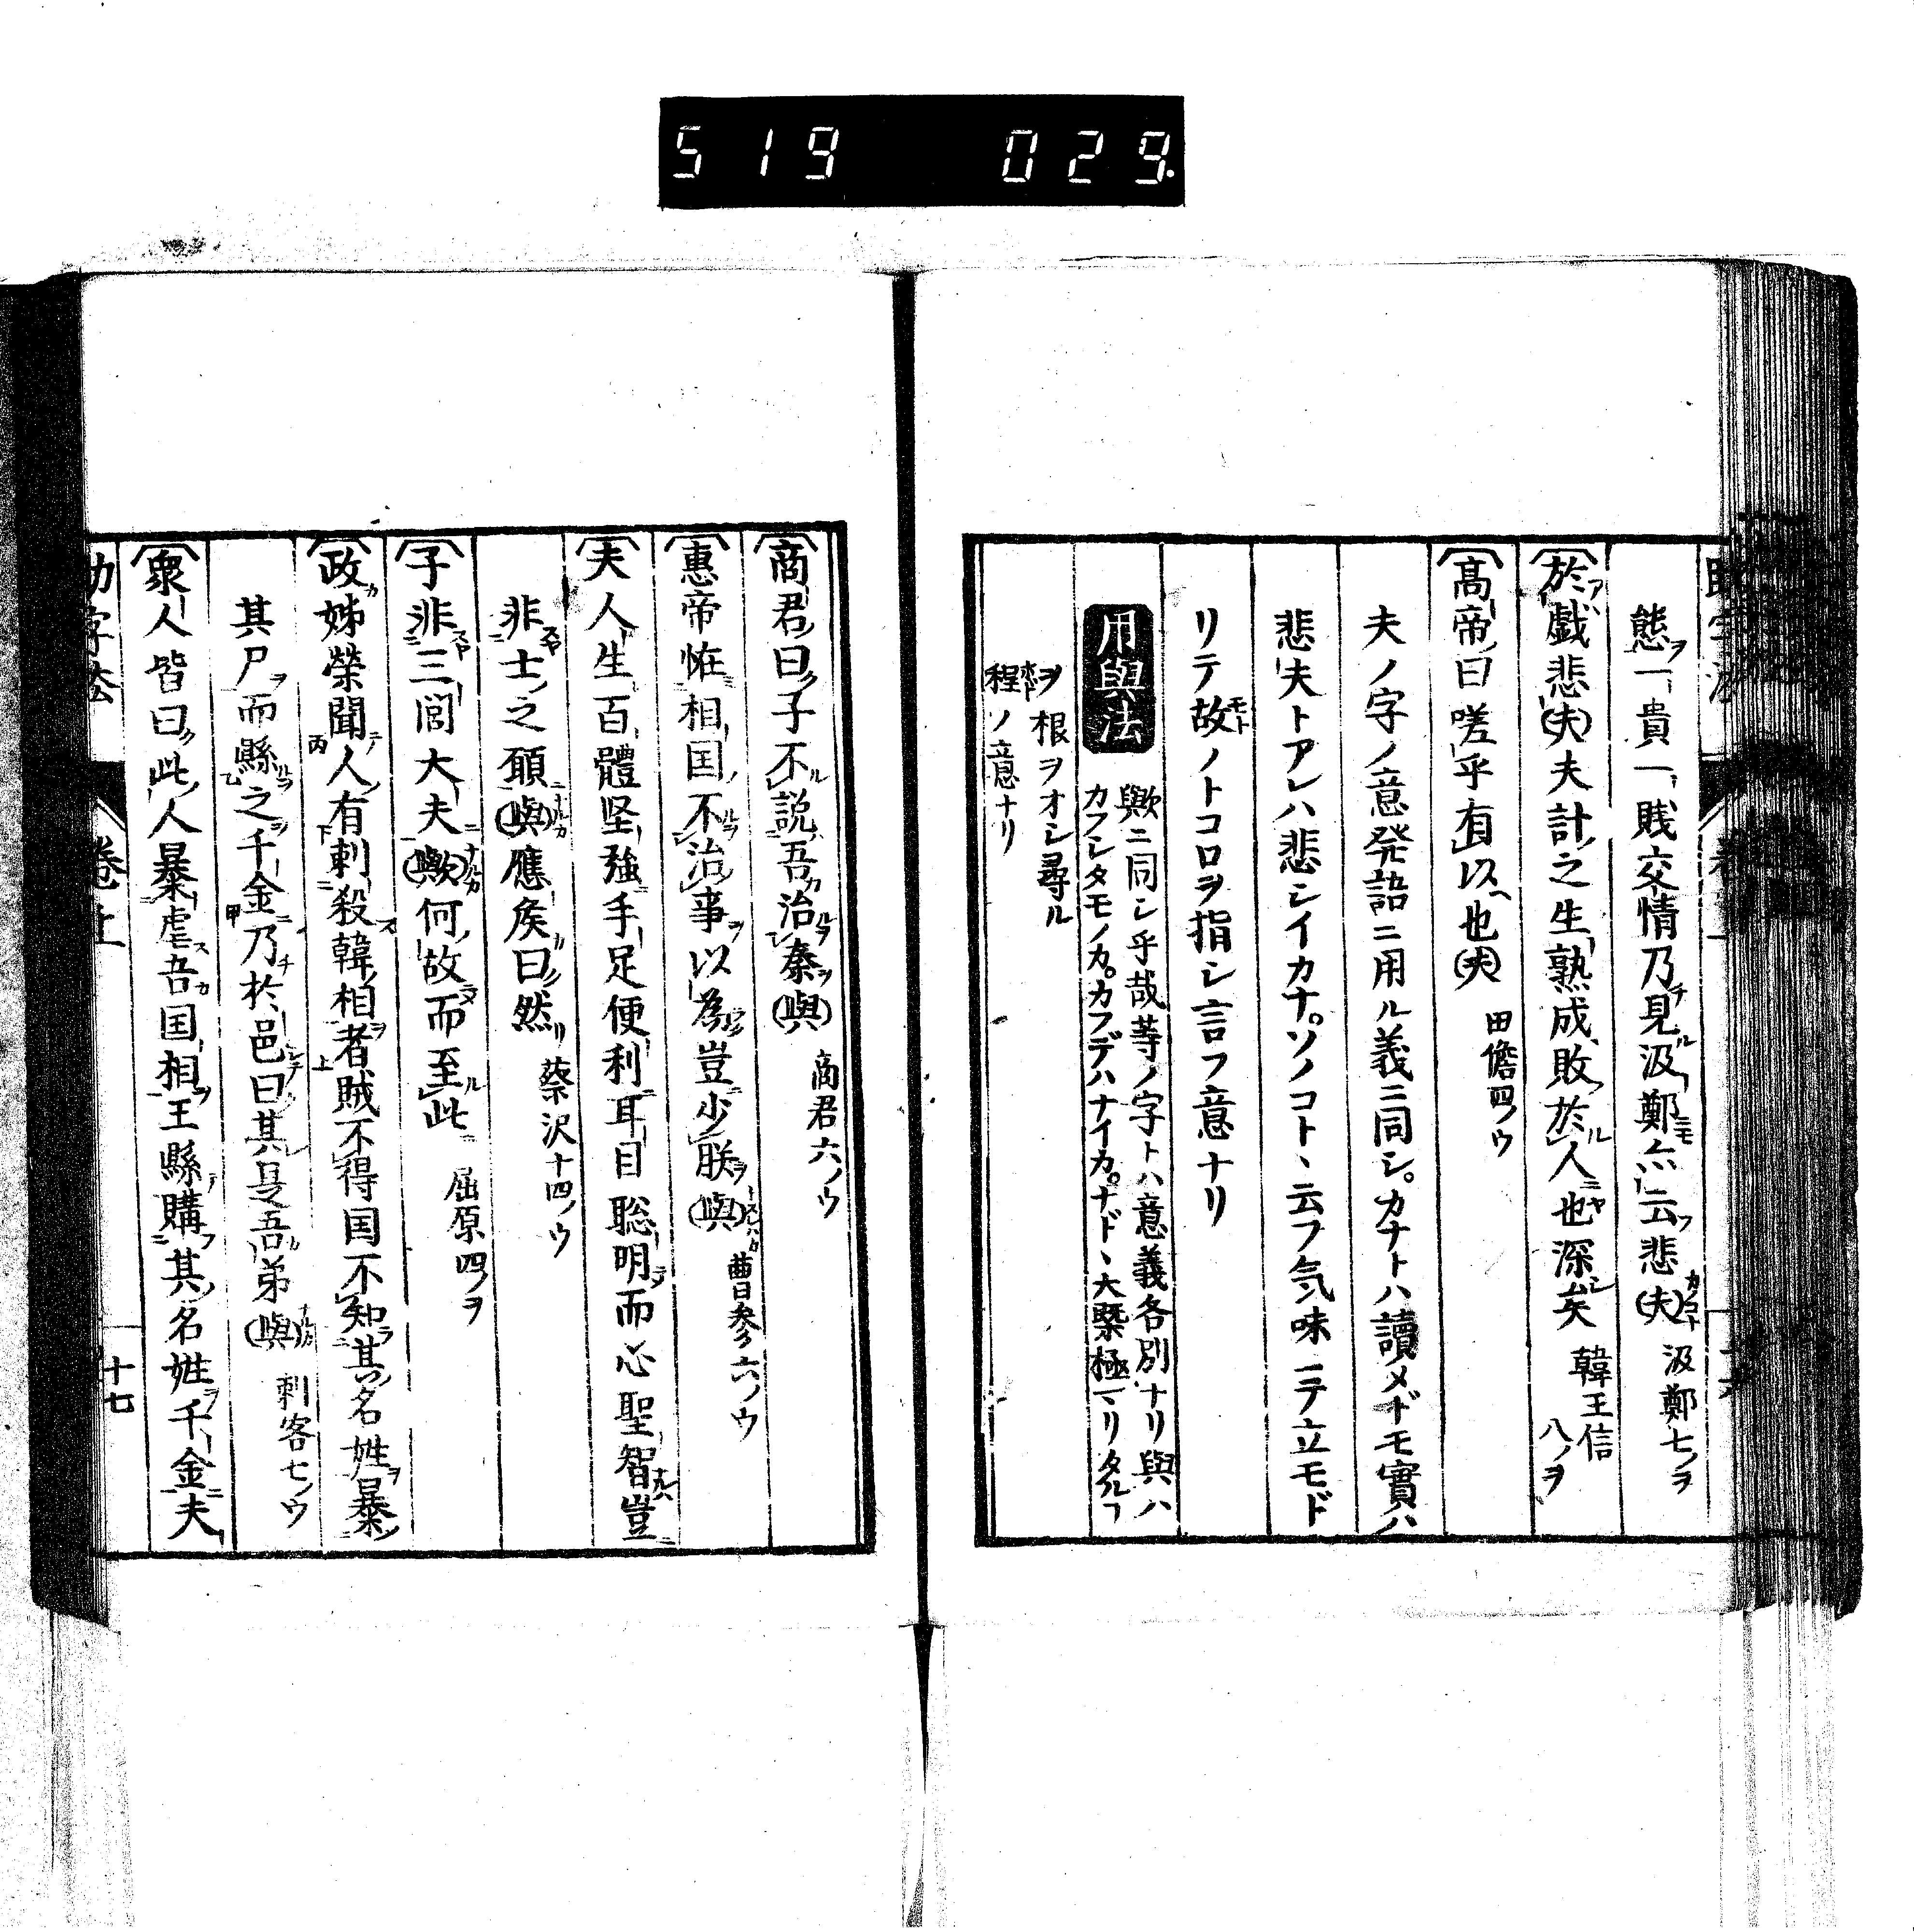 519 029.
態一貴一賤交情乃見汲鄭亦云悲夫 汲鄭七ノヲ
於戯悲夫夫計之生熟成敗於人也深矣 韓王信八ノヲ
高帝曰嗟乎有以也夫 田儋四ノウ
夫ノ字ノ意発語ニ用ル義ニ同シ。カナトハ讀メドモ實ハ
悲夫トアレハ悲シイカナ。ソノコトヽ云フ気味ニテ立モド
リテ故ノトコロヲ指シ言フ意ナリ
用與法 歟ニ同シ乎哉等ノ字トハ意義各別ナリ與ハ
カフシタモノカ。カフデハナイカ。ナドヽ大槩極マリタルヿ
ヲ根ヲオシ尋ル
程ノ意ナリ
商君曰子不説吾治秦與 商君六ノウ
惠帝恠相国不治事以為豈少朕與 曹参六ノウ
夫人生百體堅強手足便利耳目聡明而心聖智豈
非士之願與應侯曰然 蔡沢十四ノウ
子非三閭大夫歟何故而至此 屈原四ノヲ
政姊榮聞人有刺殺韓相者賊不得国不知其名姓暴
其尸而縣之千金乃於邑曰其是吾弟與 刺客七ノウ
衆人皆曰此人暴虐吾国相王縣購其名姓千金夫
助字法 卷上 十七